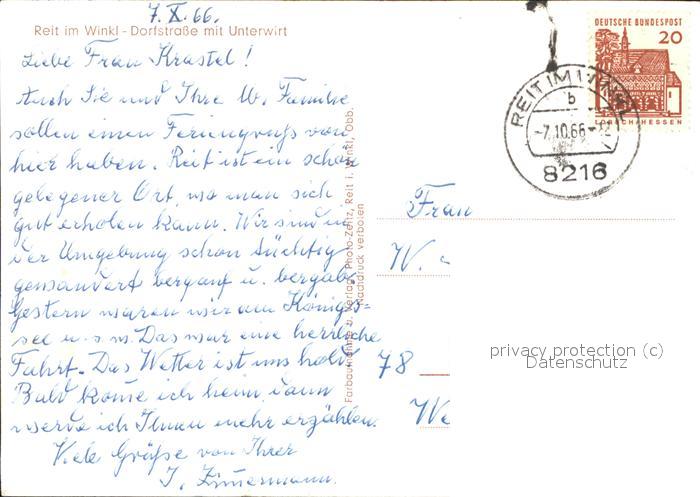 7.X.66.
Reit im Winkl - Dorfstraße mit Unterwirt
Liebe Frau Krastel!
Auch Sie und Ihre W. Familie
sollen einen Feriengruß von
hier haben. Reit ist ein schön
gelegener Ort, wo man sich
gut erholen kann. Wir sind in
der Umgebung schon tüchtig
gewandert bergauf u. bergab.
Gestern waren wir am Königs=
see u. s. w. Das war eine herrliche
Fahrt. Das Wetter ist uns hold.
Bald kome ich heim, dann
werde ich Ihnen mehr erzählen.
Viele Grüße von Ihrer
J. Zimmermann.
Verlag Photo-Zeitz, Reit i. Winkl, Obb.
Nachdruck verboten
DEUTSCHE BUNDESPOST
20
LORSCH/HESSEN
REIT IM WINKL
b
-7.10.66-12
8216
Frau
W.
78
We
privacy protection (c)
Datenschutz